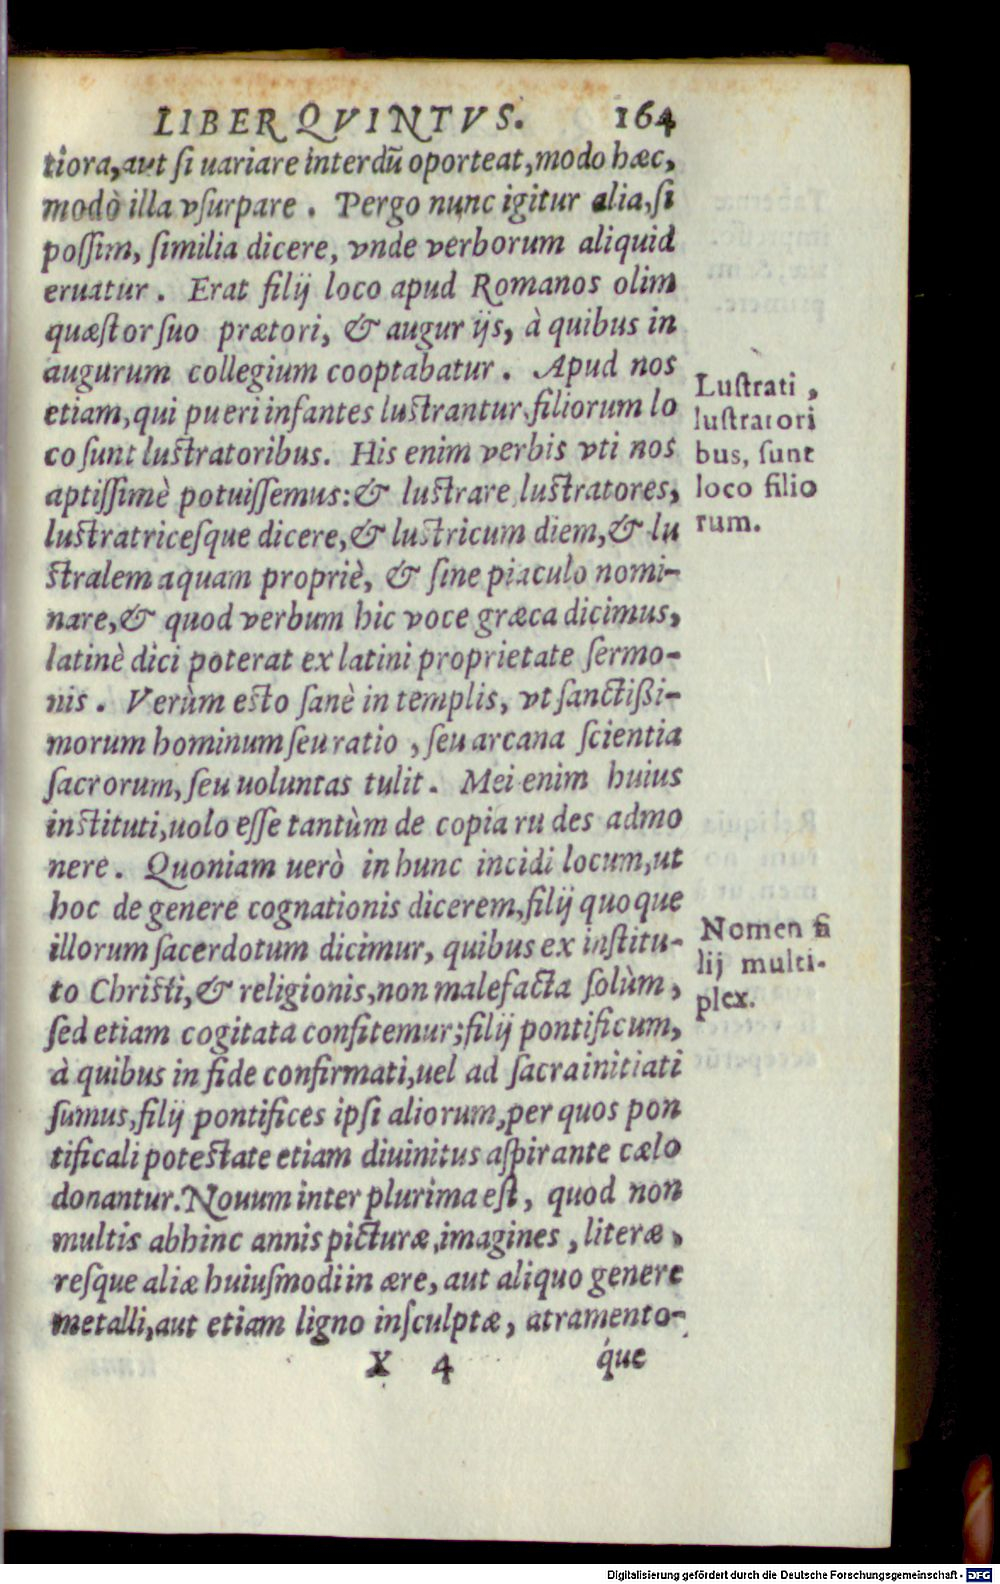 LIBER QVINTVS. 164
tiora, aut ſi uariare interdũ oporteat, modo hæc,
modò illa vſurpare. Pergo nunc igitur alia, ſi
poſſim, ſimilia dicere, vnde verborum aliquid
eruatur. Erat filij loco apud Romanos olim
quæſtor ſuo prætori, & augur ijs, à quibus in
augurum collegium cooptabatur. Apud nos
etiam, qui pueri infantes luſtrantur, filiorum lo
co ſunt luſtratoribus. His enim verbis vti nos
aptiſſimè potuiſſemus: & luſtrare luſtratores,
luſtratriceſque dicere, & luſtricum diem, & lu
ſtralem aquam propriè, & ſine piaculo nomi-
nare, & quod verbum hic voce græca dicimus,
latinè dici poterat ex latini proprietate ſermo-
nis. Verùm eſto ſanè in templis, vt ſanctißi-
morum hominum ſeu ratio, ſeu arcana ſcientia
ſacrorum, ſeu uoluntas tulit. Mei enim huius
inſtituti, uolo eſſe tantùm de copia ru des admo
nere. Quoniam uerò in hunc incidi locum, ut
hoc de genere cognationis dicerem, filij quoque
illorum ſacerdotum dicimur, quibus ex inſtitu-
to Chriſti, & religionis, non malefacta ſolùm,
ſed etiam cogitata confitemur; filij pontificum,
à quibus in fide confirmati, uel ad ſacra initiati
ſumus, filij pontifices ipſi aliorum, per quos pon
tificali poteſtate etiam diuinitus aſpirante cælo
donantur. Nouum inter plurima eſt, quod non
multis abhinc annis picturæ, imagines, literæ,
reſque aliæ huiuſmodi in ære, aut aliquo genere
metalli, aut etiam ligno inſculptæ, atramento-
X 4 que
Luſtrati,
luſtratori
bus, ſunt
loco filio
rum.
Nomen fi
lij multi-
plex.
Digitalisierung gefördert durch die Deutsche Forschungsgemeinschaft - DFG